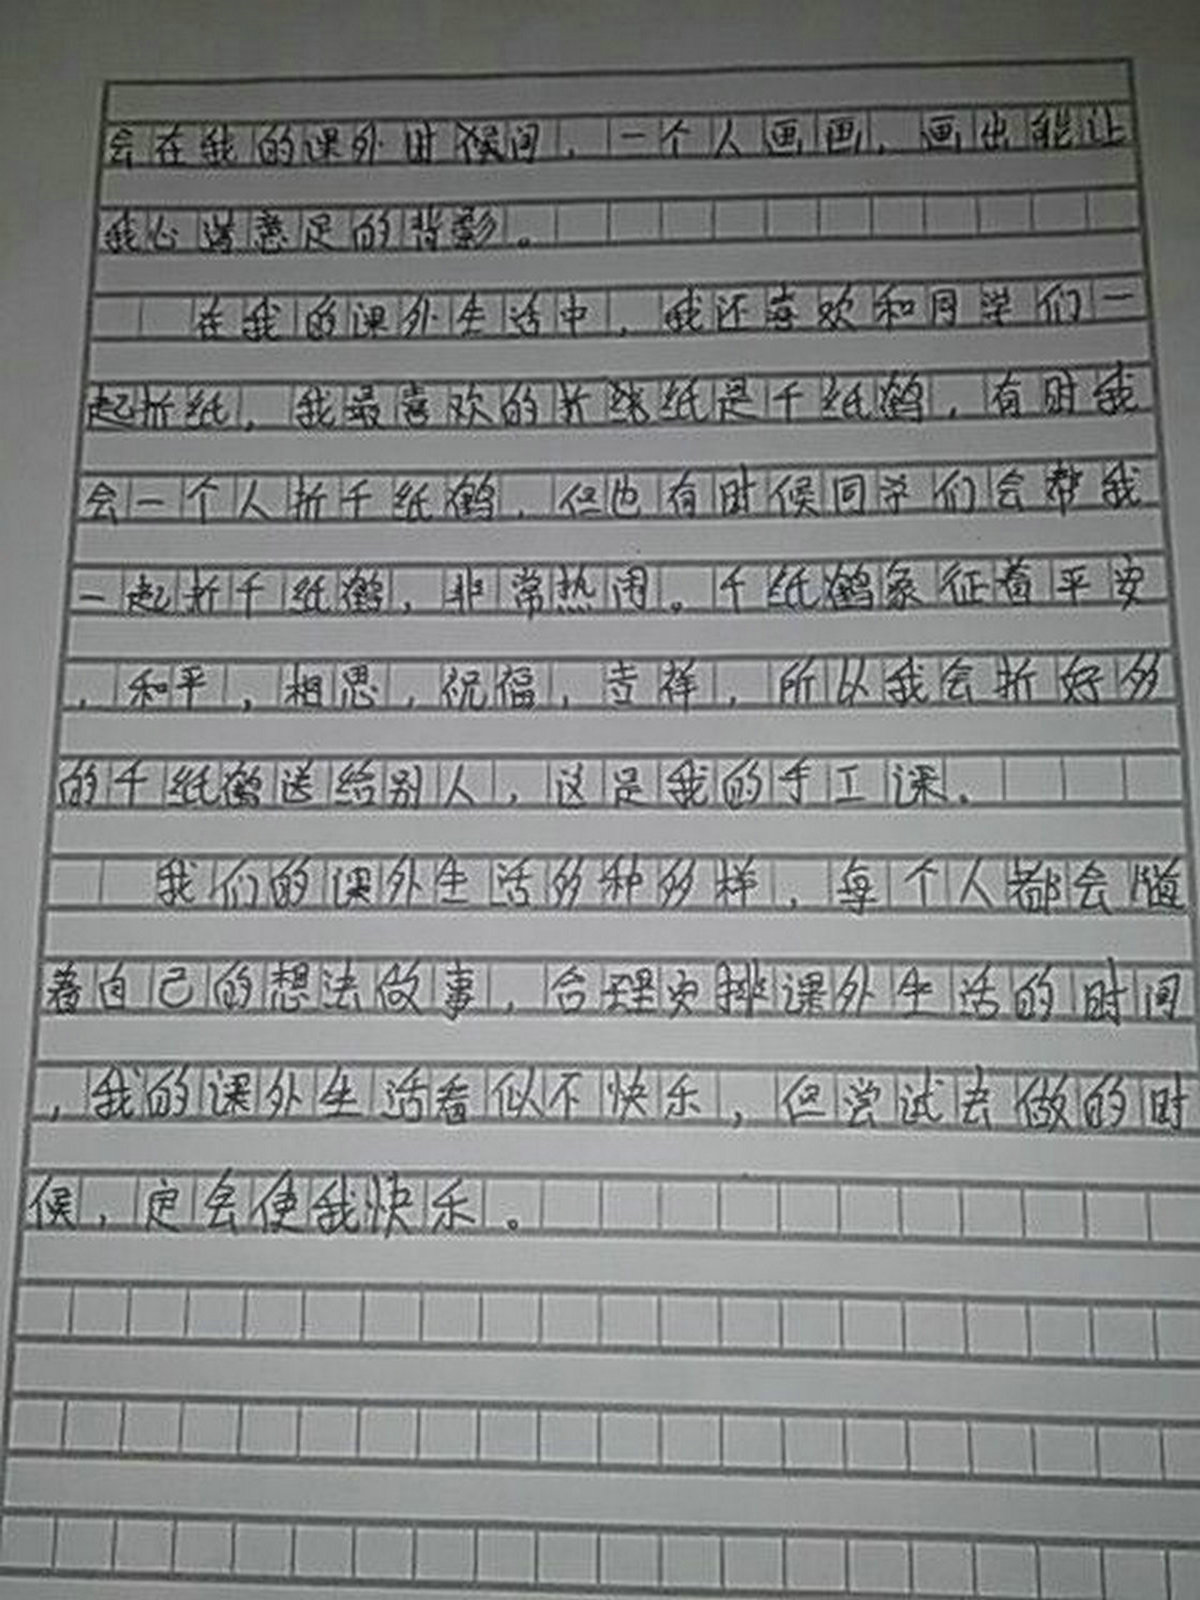 会在我的课外时候间，一个人画画，画出能让
我心满意足的背影。
在我的课外生活中，我还喜欢和同学们一
起折纸，我最喜欢的折纸是千纸鹤，有时我
会一个人折千纸鹤，但也有时候同学们会帮我
一起折千纸鹤，非常热闹。千纸鹤象征着平安
，和平，相思，祝福，吉祥，所以我会折好多
的千纸鹤送给别人，这是我的手工课。
我们的课外生活多种多样，每个人都会随
着自己的想法做事，合理安排课外生活的时间
，我的课外生活看似不快乐，但尝试去做的时
候，定会使我快乐。